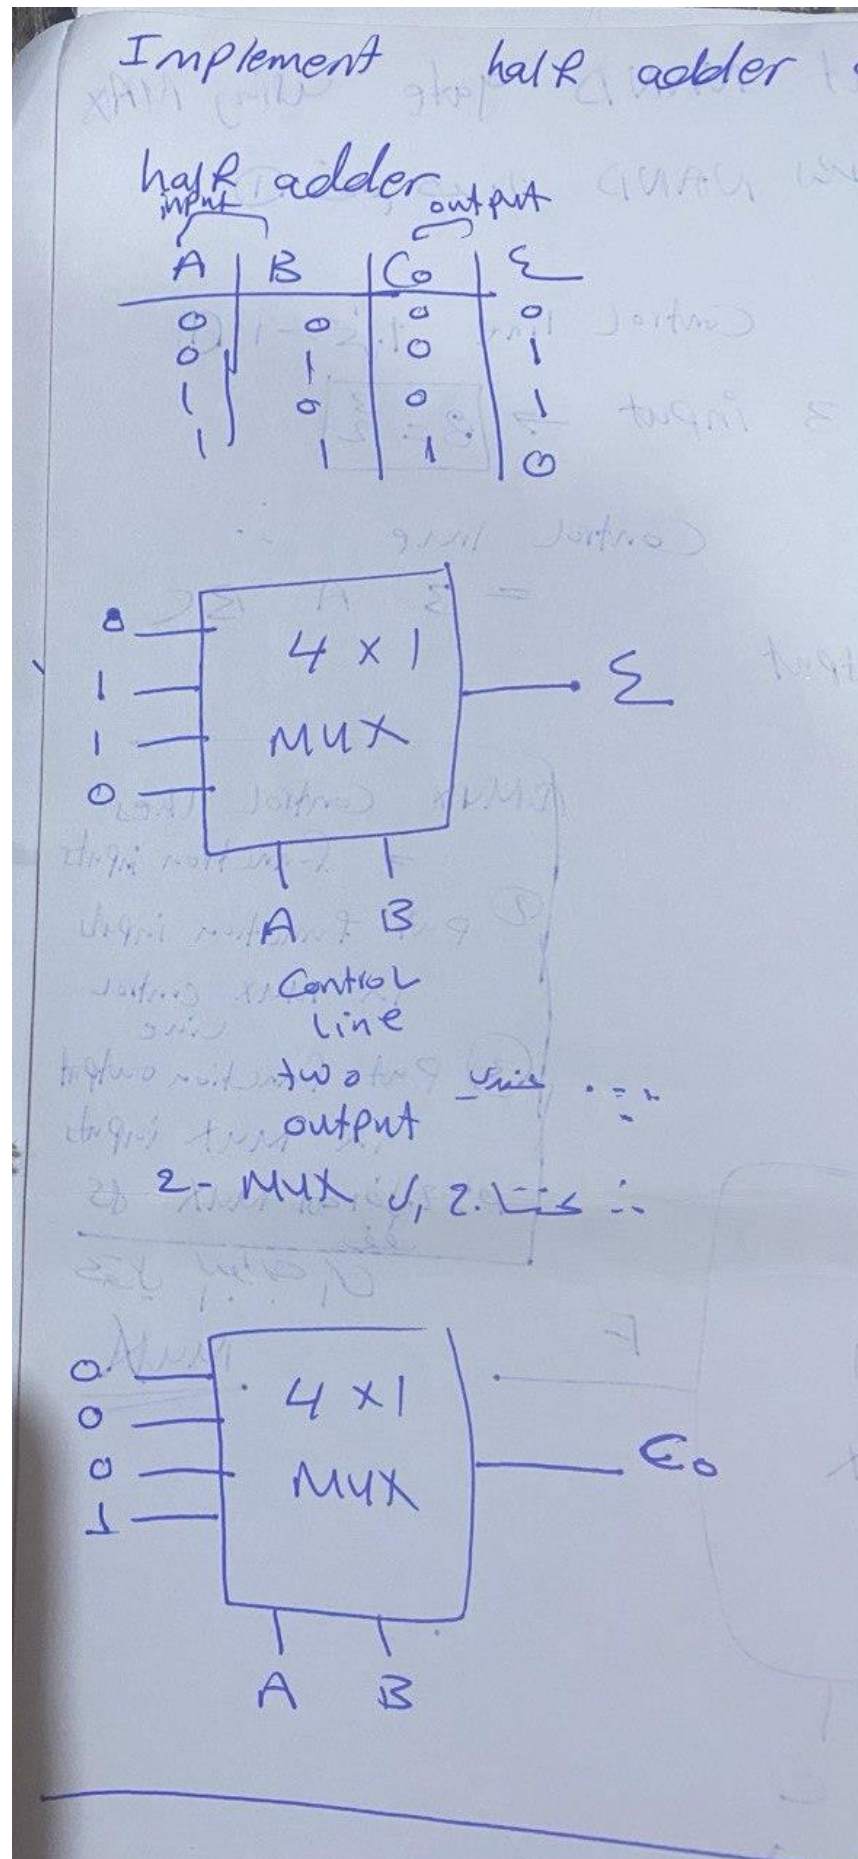 Implement half adder
half adder
input output
A B Co Σ
0 0 0 0
0 1 0 1
1 0 0 1
1 1 1 0
0
1
1
0
4 x 1
MUX
Σ
A B
Control
line
∵ عندي two
output
∴ حتحتاج 2 - MUX
0
0
0
1
4 x 1
MUX
Co
A B